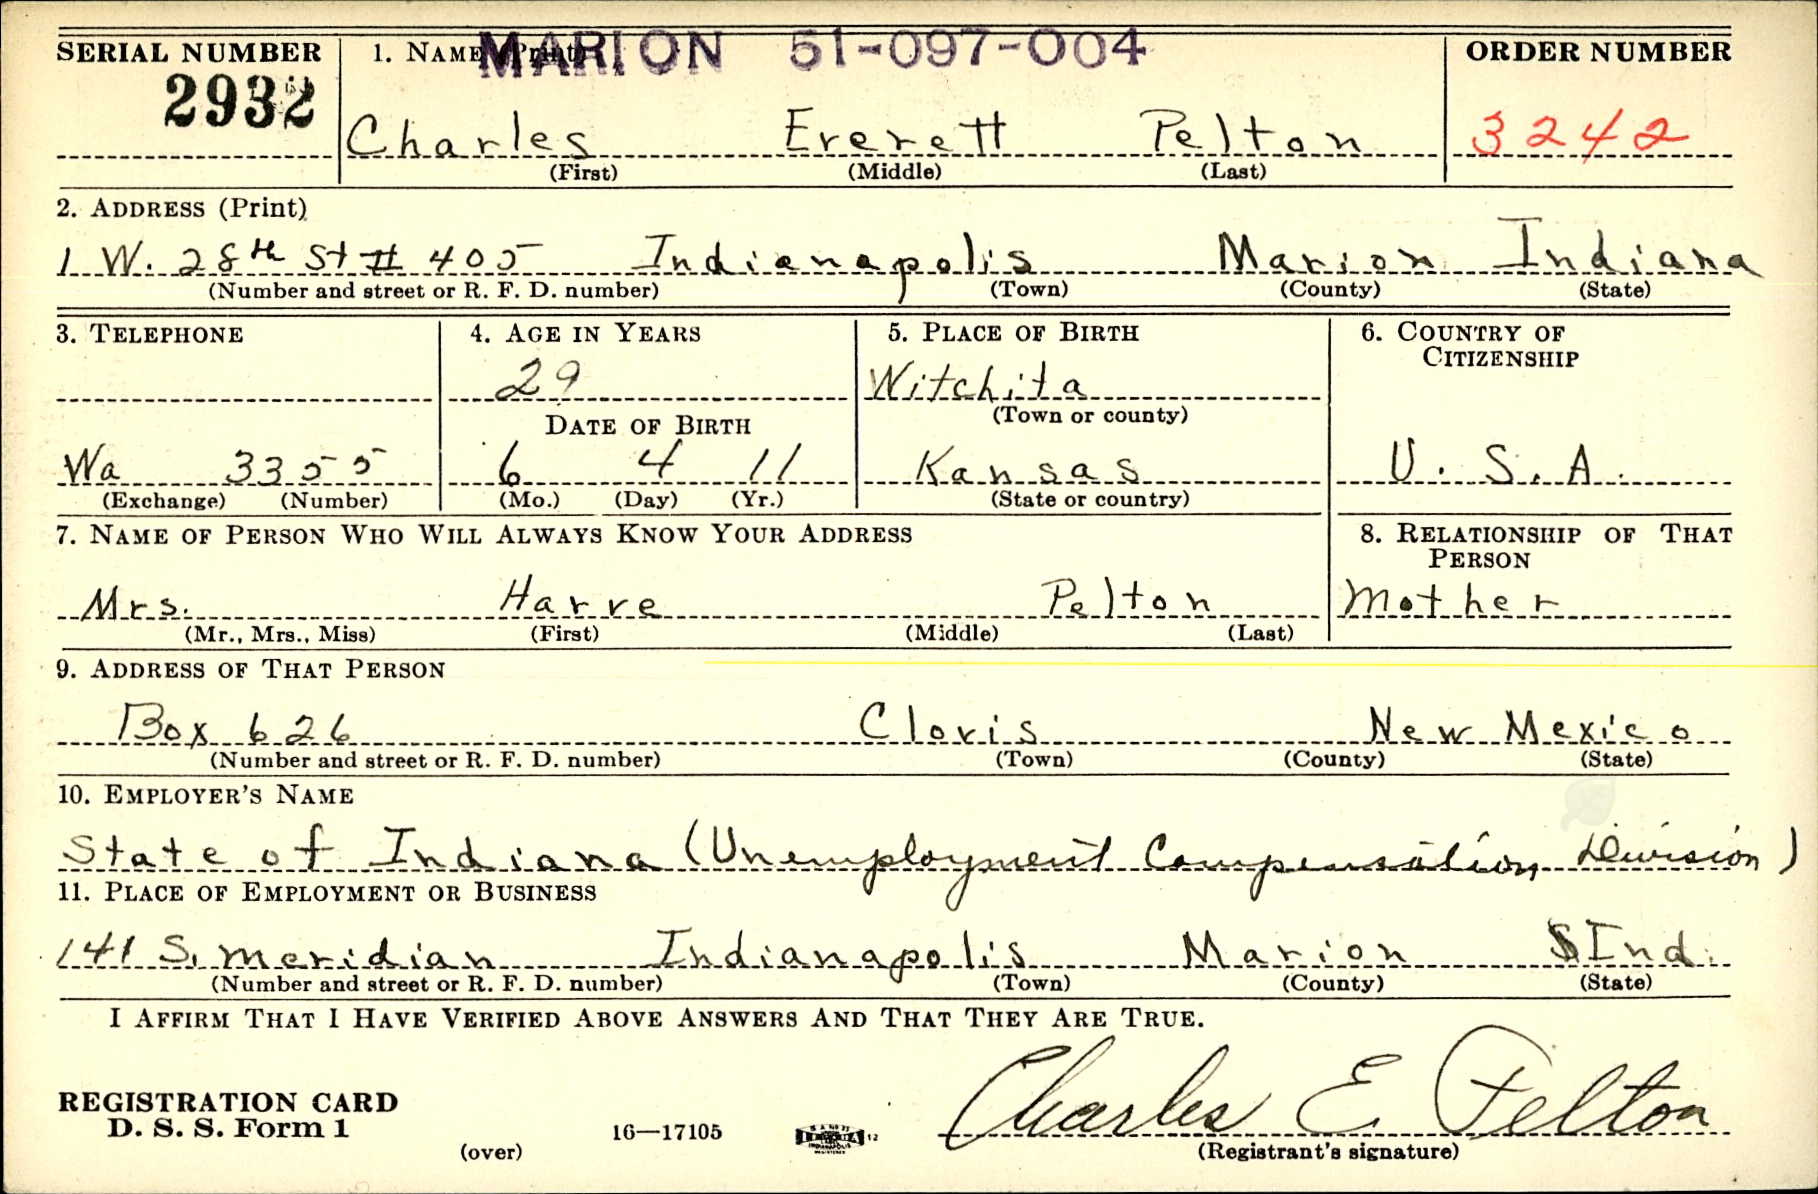 SERIAL NUMBER 1. NAME (Print) MARION 51-097-004 ORDER NUMBER
2932 Charles Everett Pelton 3242
(First) (Middle) (Last)
2. ADDRESS (Print)
1 W. 28th St # 405 Indianapolis Marion Indiana
(Number and street or R. F. D. number) (Town) (County) (State)
3. TELEPHONE 4. AGE IN YEARS 5. PLACE OF BIRTH 6. COUNTRY OF CITIZENSHIP
29 Witchita
DATE OF BIRTH (Town or county)
Wa 3355 6 4 11 Kansas U. S. A.
(Exchange) (Number) (Mo.) (Day) (Yr.) (State or country)
7. NAME OF PERSON WHO WILL ALWAYS KNOW YOUR ADDRESS 8. RELATIONSHIP OF THAT PERSON
Mrs. Harve Pelton Mother
(Mr., Mrs., Miss) (First) (Middle) (Last)
9. ADDRESS OF THAT PERSON
Box 626 Clovis New Mexico
(Number and street or R. F. D. number) (Town) (County) (State)
10. EMPLOYER'S NAME
State of Indiana (Unemployment Compensation Division)
11. PLACE OF EMPLOYMENT OR BUSINESS
141 S. Meridian Indianapolis Marion Ind.
(Number and street or R. F. D. number) (Town) (County) (State)
I AFFIRM THAT I HAVE VERIFIED ABOVE ANSWERS AND THAT THEY ARE TRUE.
REGISTRATION CARD
D. S. S. Form 1 16—17105 12 Charles E. Pelton
(over) (Registrant's signature)